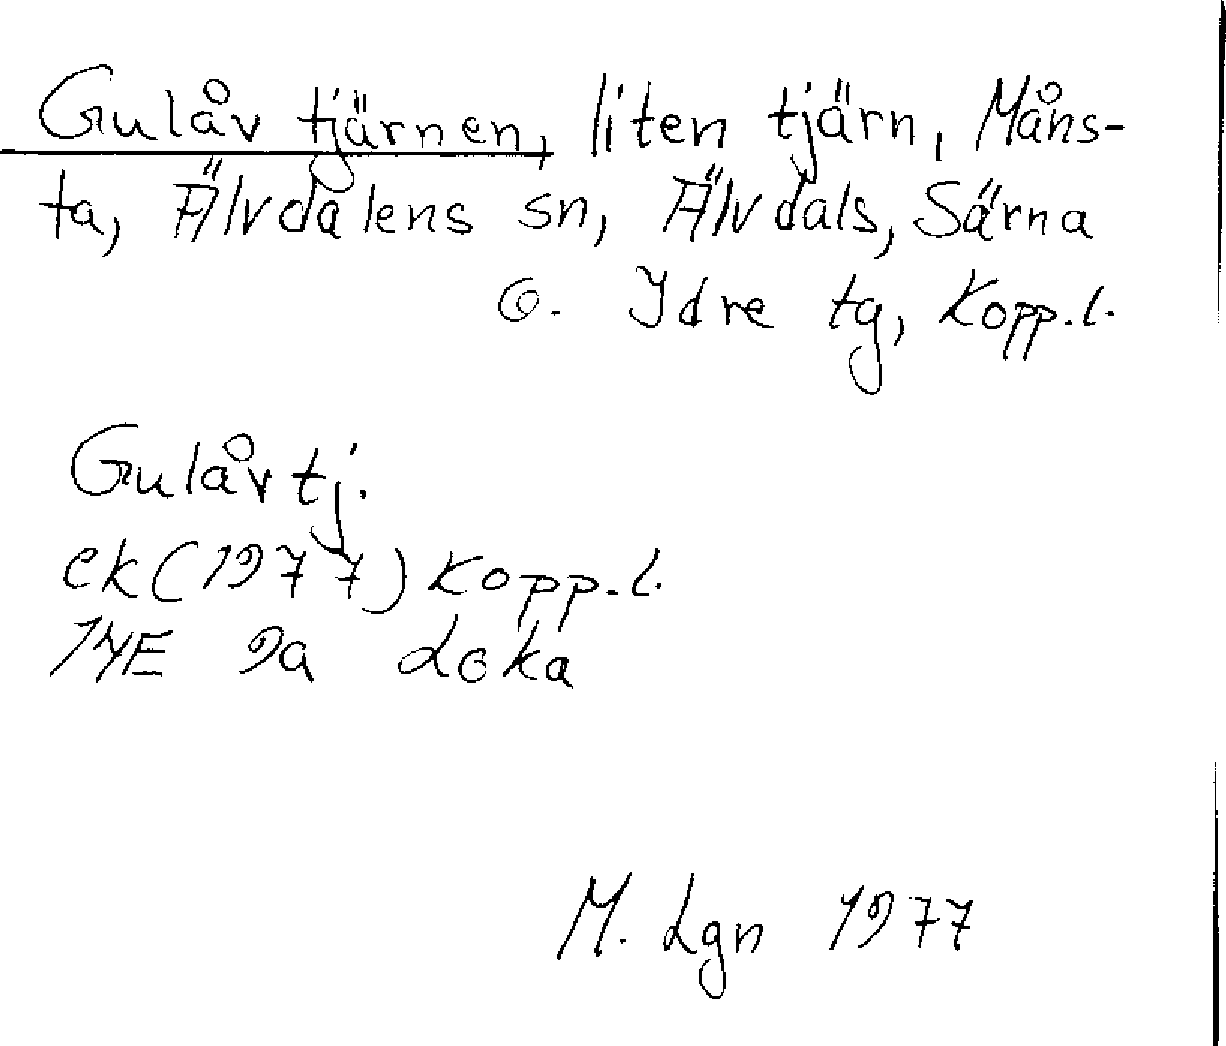 Gulåv tjärnen, liten tjärn, Måns-
ta, Älvdalens sn, Älvdals, Särna
o. Idre tg, Kopp.l.
Gulåv tj.
ek(1977) Kopp.l.
14E 9a Loka
M. Lgn 1977